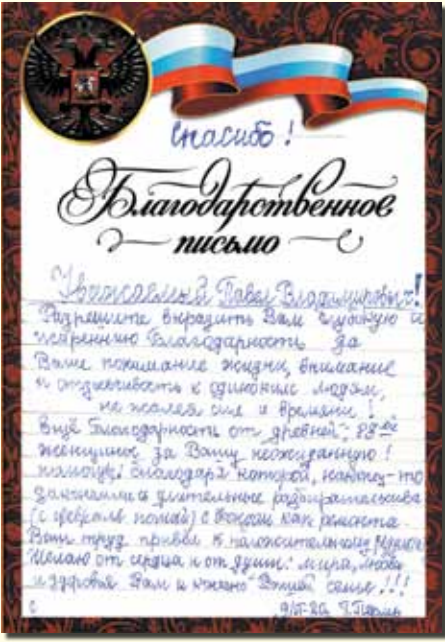 Спасибо!
Благодарственное
письмо
Уважаемый Павел Владимирович!
Разрешите выразить Вам глубокую и
искреннюю благодарность за
Ваше понимание жизни, внимание
и отзывчивость к одиноким людям,
не жалея сил и времени!
Ещё благодарность от древней,
женщины за Вашу неожиданную!
помощь! благодаря которой, наконец-то
закончились длительные разбирательства
(с февраля по май) с Фондом кап. ремонта.
Ваш труд привёл к положительному
Желаю от сердца и от души: мира, любви
и здоровья Вам и Вашей семье!!!
г. Пермь